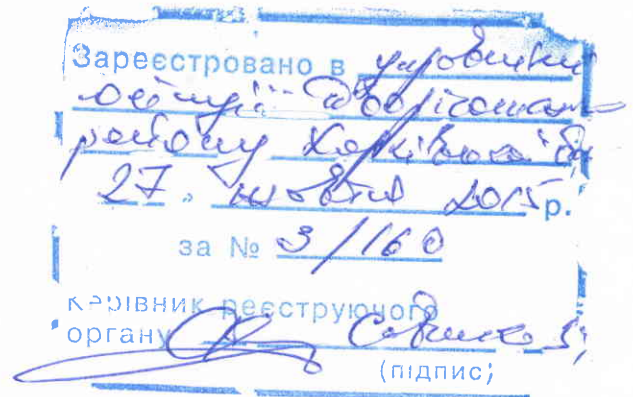 Зареєстровано в управлінні
юстиції
району Харківської обл
27 " жовтня 2015 р.
за № 3/160
керівник реєструючого
органу
(підпис)